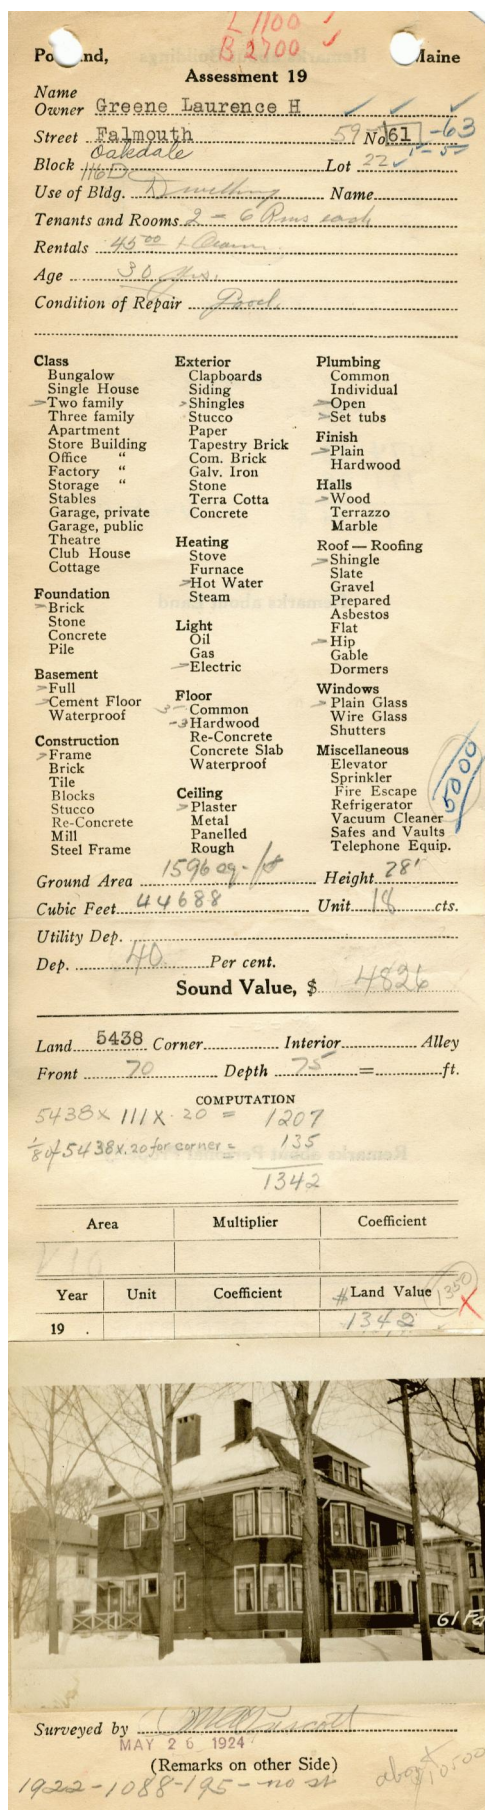 L 1100 ✓
B 2700 ✓
Portland, Maine
Assessment 19
Name
Owner Greene Laurence H
Street Falmouth 59- No 61 -63
Oakdale
Block 116D Lot 22
Use of Bldg. Dwelling Name
Tenants and Rooms 2 - 6 Rms each
Rentals 45 00
Age 30 yrs.
Condition of Repair Good
Class
Bungalow
Single House
Two family
Three family
Apartment
Store Building
Office "
Factory "
Storage "
Stables
Garage, private
Garage, public
Theatre
Club House
Cottage
Foundation
Brick
Stone
Concrete
Pile
Basement
Full
Cement Floor
Waterproof
Construction
Frame
Brick
Tile
Blocks
Stucco
Re-Concrete
Mill
Steel Frame
Exterior
Clapboards
Siding
Shingles
Stucco
Paper
Tapestry Brick
Com. Brick
Galv. Iron
Stone
Terra Cotta
Concrete
Heating
Stove
Furnace
Hot Water
Steam
Light
Oil
Gas
Electric
Floor
3- Common
-3 Hardwood
Re-Concrete
Concrete Slab
Waterproof
Ceiling
Plaster
Metal
Panelled
Rough
Plumbing
Common
Individual
Open
Set tubs
Finish
Plain
Hardwood
Halls
Wood
Terrazzo
Marble
Roof — Roofing
Shingle
Slate
Gravel
Prepared
Asbestos
Flat
Hip
Gable
Dormers
Windows
Plain Glass
Wire Glass
Shutters
Miscellaneous
Elevator
Sprinkler
Fire Escape
Refrigerator
Vacuum Cleaner
Safes and Vaults
Telephone Equip.
5000
Ground Area 1596 sq-ft Height 28'
Cubic Feet 44688 Unit 18 cts.
Utility Dep.
Dep. 40 Per cent.
Sound Value, $ 4826
Land 5438 Corner Interior Alley
Front 70 Depth 75 = ft.
COMPUTATION
5438 x 111 x .20 = 1207
1/8 of 5438 x .20 for corner = 135
1342
Area Multiplier Coefficient
V10
Year Unit Coefficient # Land Value 1350 X
19 . 1342
61 Fa
Surveyed by
MAY 26 1924
(Remarks on other Side)
1922-1088-195-no st
about 10500